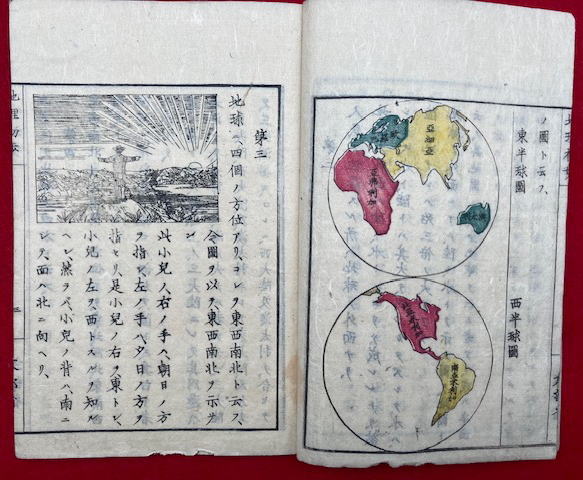 ノ圖ト云フ、
東半球圖
西半球圖
亞細亞
亞弗利加
北亞米利加
南亞米利加
第三
地球ハ四個ノ方位アリ、コレヲ東西南北ト云フ、
今圖ヲ以テ東西南北ヲ示サ
ン
此小兒ノ右ノ手ハ朝日ノ方
ヲ指シ左ノ手ハ夕日ノ方ヲ
指セリ是小兒ノ右ヲ東トシ、
小兒ノ左ヲ西トスルヲ知ル
ベシ、然ラバ小兒ノ背ハ南ニ
シテ、面ハ北ニ向ヘリ、
地理初歩